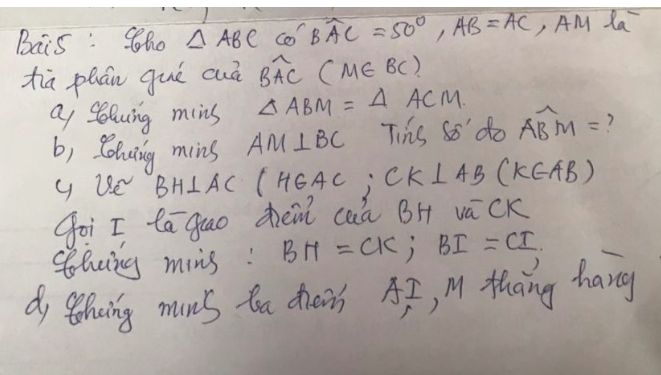 Bài 5 : Cho △ ABC có BÂC = 50°, AB = AC, AM là
tia phân giác của BÂC (M∈ BC)
a, Chứng minh △ ABM = △ ACM.
b, Chứng minh AM⊥BC Tính số đo AB̂M = ?
c, Vẽ BH⊥AC (H∈AC ; CK⊥AB (K∈AB)
Gọi I là giao điểm của BH và CK
Chứng minh : BH = CK ; BI = CI.
d, Chứng minh ba điểm A, I, M thẳng hàng